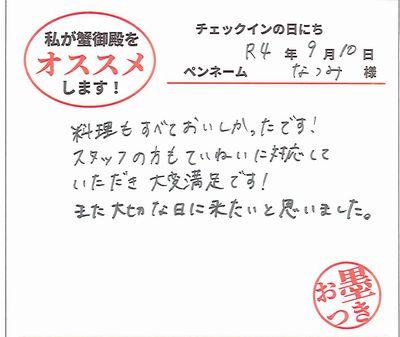 私が蟹御殿を
オススメ
します！
チェックインの日にち
R4 年 9 月 10 日
ペンネーム なつみ 様
料理もすべておいしかったです!
スタッフの方もていねいに対応して
いただき 大変満足です!
また大切な日に来たいと思いました。
お墨
つき